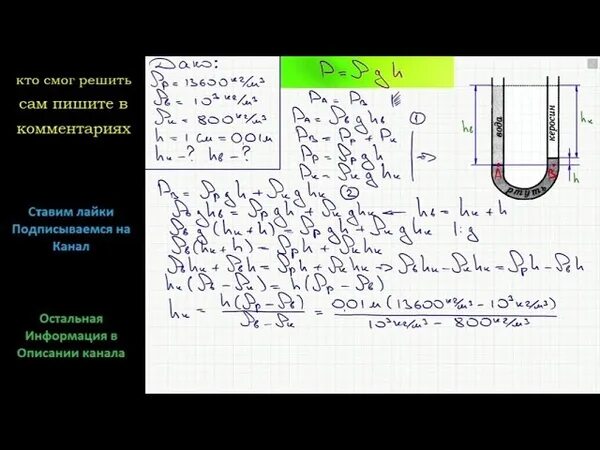 кто смог решить
сам пишите в
комментариях
Ставим лайки
Подписываемся на
Канал
Остальная
Информация в
Описании канала
Дано:
ρр = 13600 кг/м³
ρв = 10³ кг/м³
ρк = 800 кг/м³
h = 1 см = 0,01 м
hк - ? hв - ?
P = ρgh
PA = PB
PA = ρв g hв ①
PB = Pр + Pк
Pр = ρр g h
Pк = ρк g hк
PB = ρр g h + ρк g hк ②
ρв g hв = ρр g h + ρк g hк ← hв = hк + h
ρв g (hк + h) = ρр g h + ρк g hк | : g
ρв (hк + h) = ρр h + ρк hк
ρв hк + ρв h = ρр h + ρк hк → ρв hк - ρк hк = ρр h - ρв h
hк (ρв - ρк) = h (ρр - ρв)
hк = h (ρр - ρв) / ρв - ρк = 0,01 м (13600 кг/м³ - 10³ кг/м³) / 10³ кг/м³ - 800 кг/м³
hв
вода
керосин
hк
A
B
h
ртуть